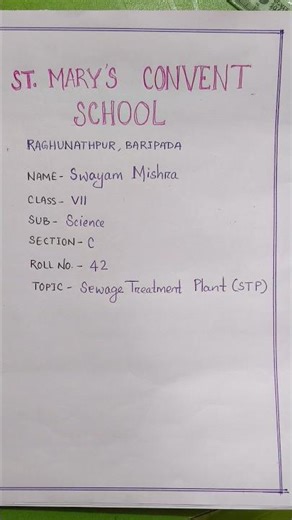 ST. MARY'S CONVENT
SCHOOL
RAGHUNATHPUR, BARIPADA
NAME - Swayam Mishra
CLASS - VII
SUB - Science
SECTION - C
ROLL NO. - 42
TOPIC - Sewage Treatment Plant (STP)